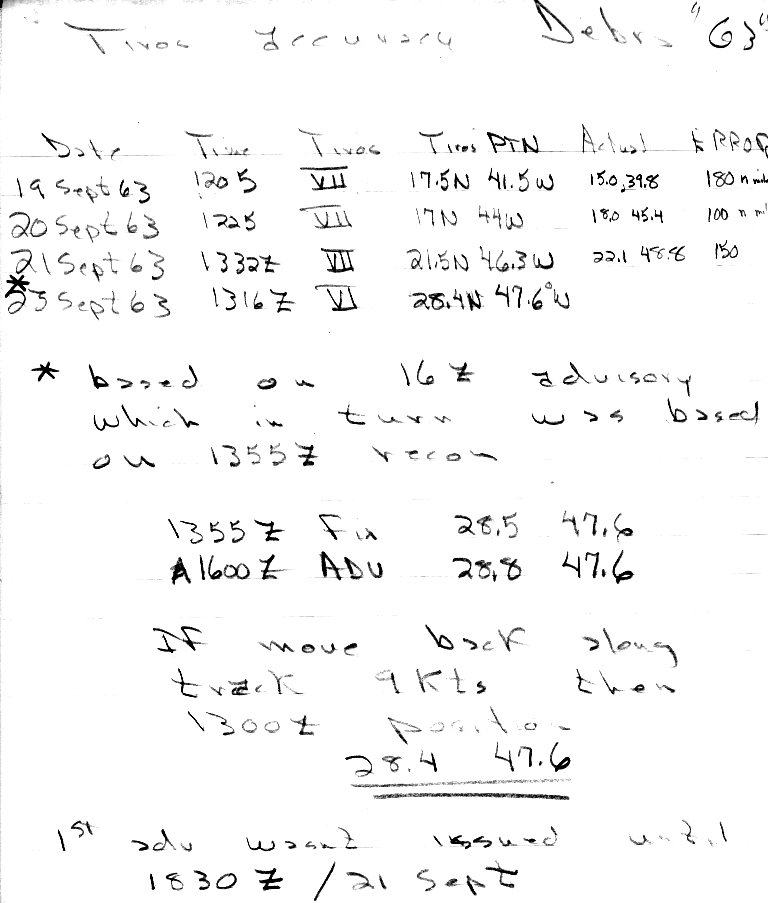 Tiros accuracy Debra "63"
Date Time Tiros Tiros PTN Actual ERROR
19 Sept 63 1205 VII 17.5N 41.5W 15.0, 39.8 180 n mile
20 Sept 63 1225 VII 17N 44W 18.0 45.4 100 n mi
21 Sept 63 1332Z VII 21.5N 46.3W 22.1 48.8 150
* 23 Sept 63 1316Z VI 28.4N 47.6°W
* based on 16Z advisory
which in turn was based
on 1355Z recon
1355Z Fix 28.5 47.6
1600Z ADV 28.8 47.6
If move back along
track 9 Kts then
1300Z position
28.4 47.6
1st adv wasnt issued until
1830Z/21 Sept